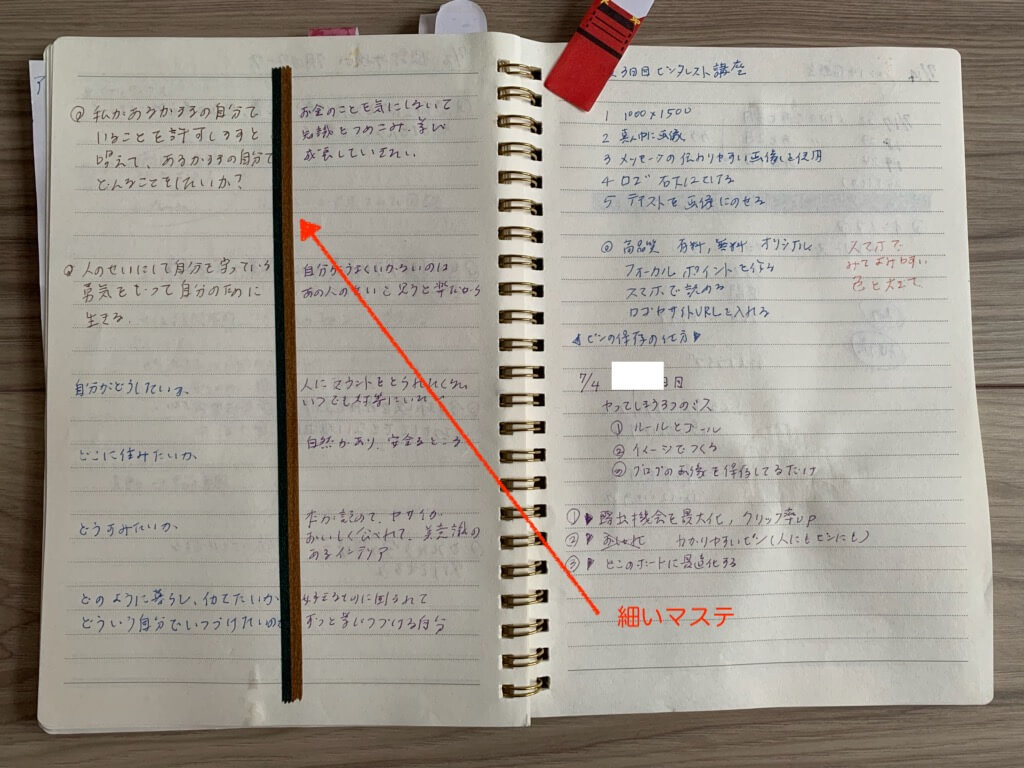 私があるがままの自分で
いることを許すしますと
唱えて、あるがままの自分で
どんなことをしたいか?
お金のことを気にしないで
知識とつめこみ、学び
成長していきたい。
人のせいにして自分を守っている
勇気をもって自分のために
生きる。
自分がうまくいかないのは
あの人のせいと思うと楽だから
自分がどうしたいか。
人にマウントをとられたくない
いつでも対等にいたい
どこに住みたいか、
自然があり、安全なところ
どうすみたいか、
本が読めて、ヤサイが
おいしく食べれて、美意識の
あるインテリア
どのように暮らし、
どういう自分でいつづけたいのか
ずっと学びつづける自分
3日目 ピンタレスト講座
1 1000×1500
2 真ん中に画像
3 メッセージの伝わりやすい画像を使用
4 ロゴ 右下にとける
5 テキストを画像にのせる
高品質 有料,無料 オリジナル
フォーカルポイントを作る
スマホで読める
ロゴやサイトURLを入れる
スマホで
みてよみやすい
色と大きさ
ピンの保存の仕方
7/4 日目
やってしまう3つのミス
① ルールとゴール
② イメージでつくる
③ ブログの画像を保存してるだけ
① 露出機会を最大化, クリック率UP
② おしゃれ わかりやすいピン(人にもピンにも)
③ どこのボードに最適化する
細いマステ